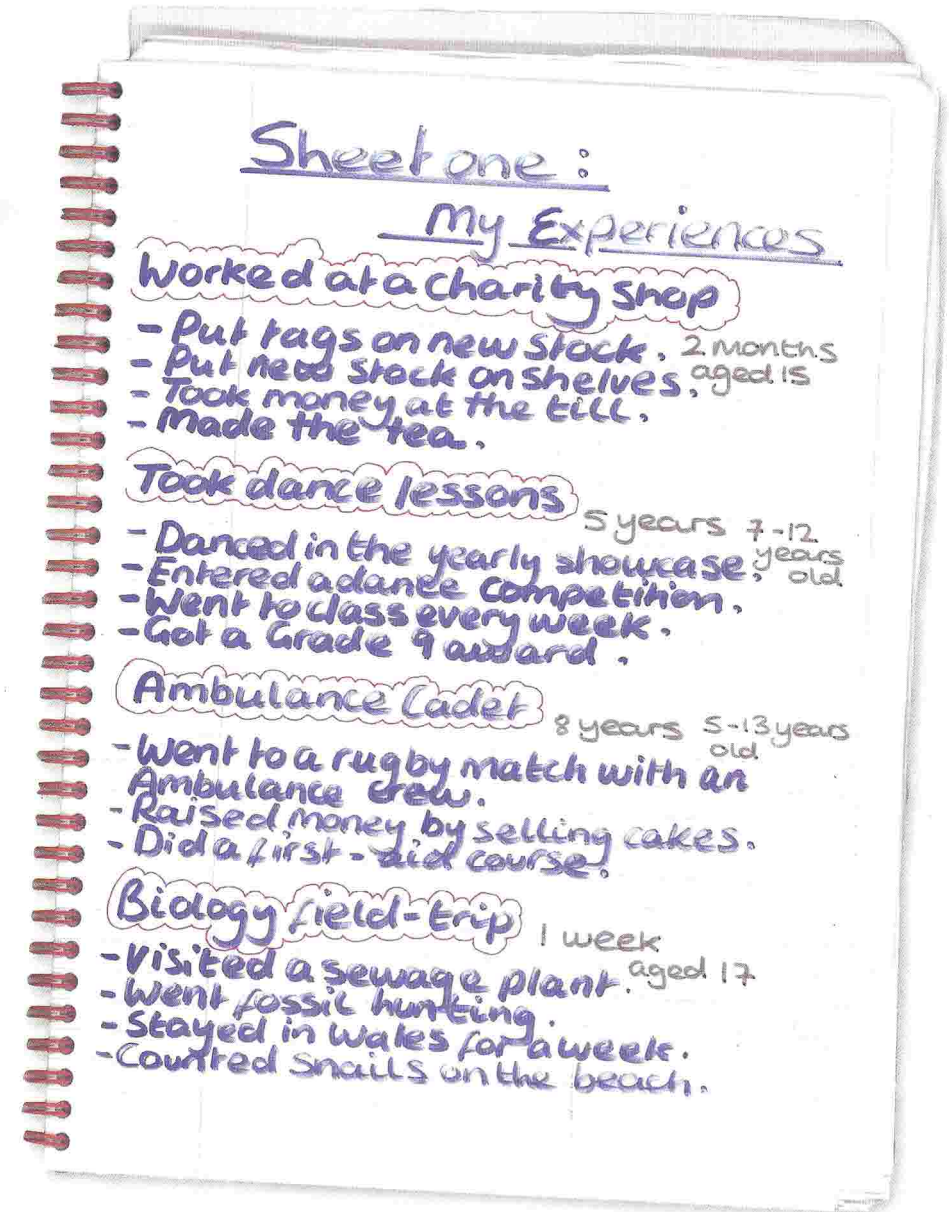 Sheet one :
My Experiences
Worked at a charity shop
- Put tags on new stock. 2 months
- Put new stock on shelves. aged 15
- Took money at the till.
- Made the tea.
Took dance lessons
5 years 7-12 years old
- Danced in the yearly showcase.
- Entered a dance competition.
- Went to class every week.
- Got a Grade 9 award.
Ambulance Cadet
8 years 5-13 years old
- Went to a rugby match with an
Ambulance crew.
- Raised money by selling cakes.
- Did a first-aid course.
Biology field-trip
1 week aged 17
- Visited a sewage plant.
- Went fossil hunting.
- Stayed in Wales for a week.
- Counted snails on the beach.